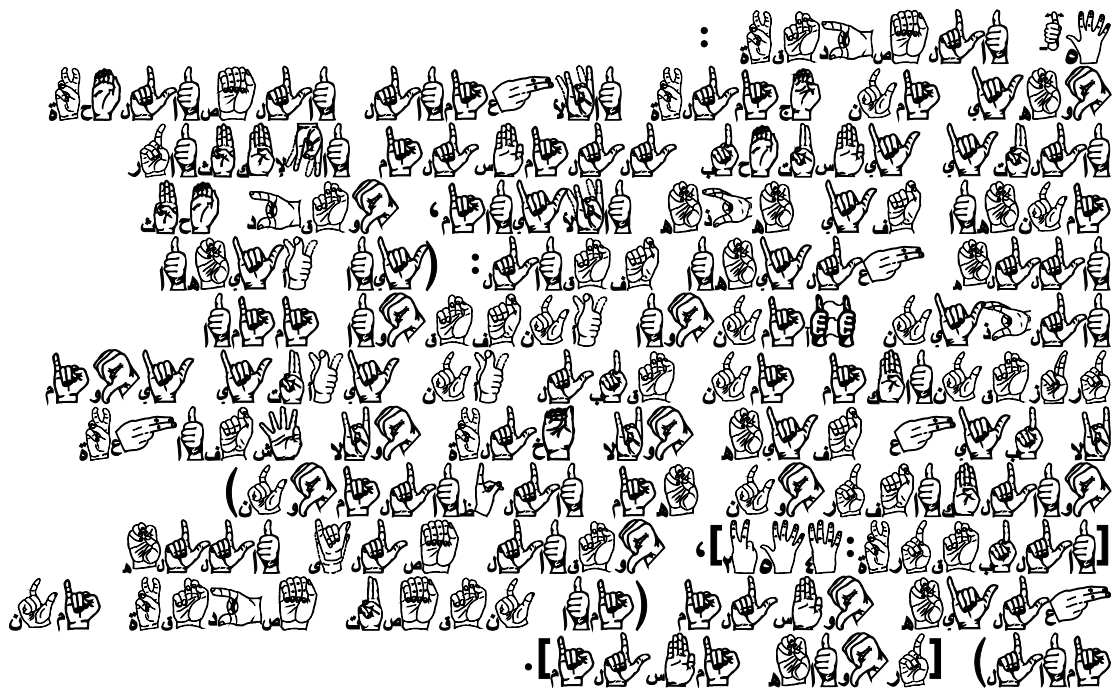 ٥ـ الصدقة :
وهي من جملة الأعمال الصالحة
التي يستحب للمسلم الإكثار
منها في هذه الأيام، وقد حث
الله عليها فقال: (يا أيها
الذين آمنوا أنفقوا مما
رزقناكم من قبل أن يأتي يوم
لا بيع فيه ولا خلة ولا شفاعة
والكافرون هم الظالمون)
[البقرة:٢٥٤]، وقال صلى الله
عليه وسلم (ما نقصت صدقة من
مال) [رواه مسلم].